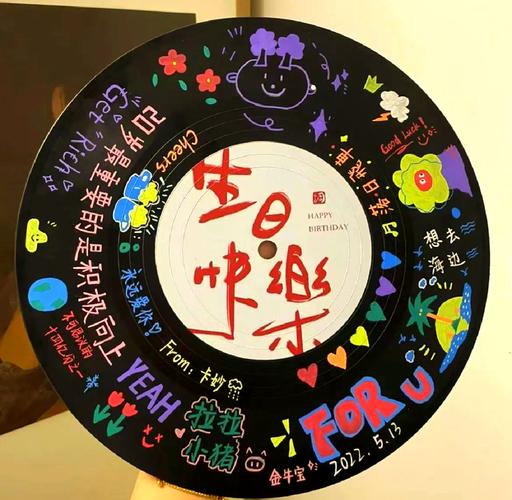 生日
快樂
HAPPY
BIRTHDAY
Get Rich
20岁最重要的是积极向上
Cheers
永远爱你
From: 卡妙
不可思议的
十四亿分之一
YEAH
拉拉
小猪
金牛宝
FOR U
2022.5.13
想去
海边
Good Luck!